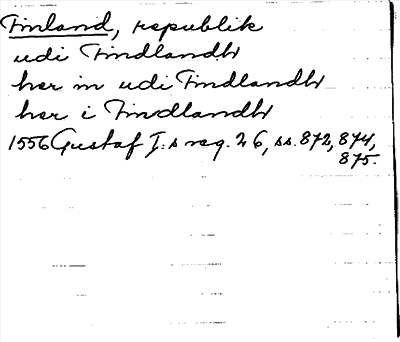 Finland, republik
udi Findlandh
her in udi Findlandh
her i Findlandh
1556 Gustaf I:s reg. 26, ss. 872, 874,
875.